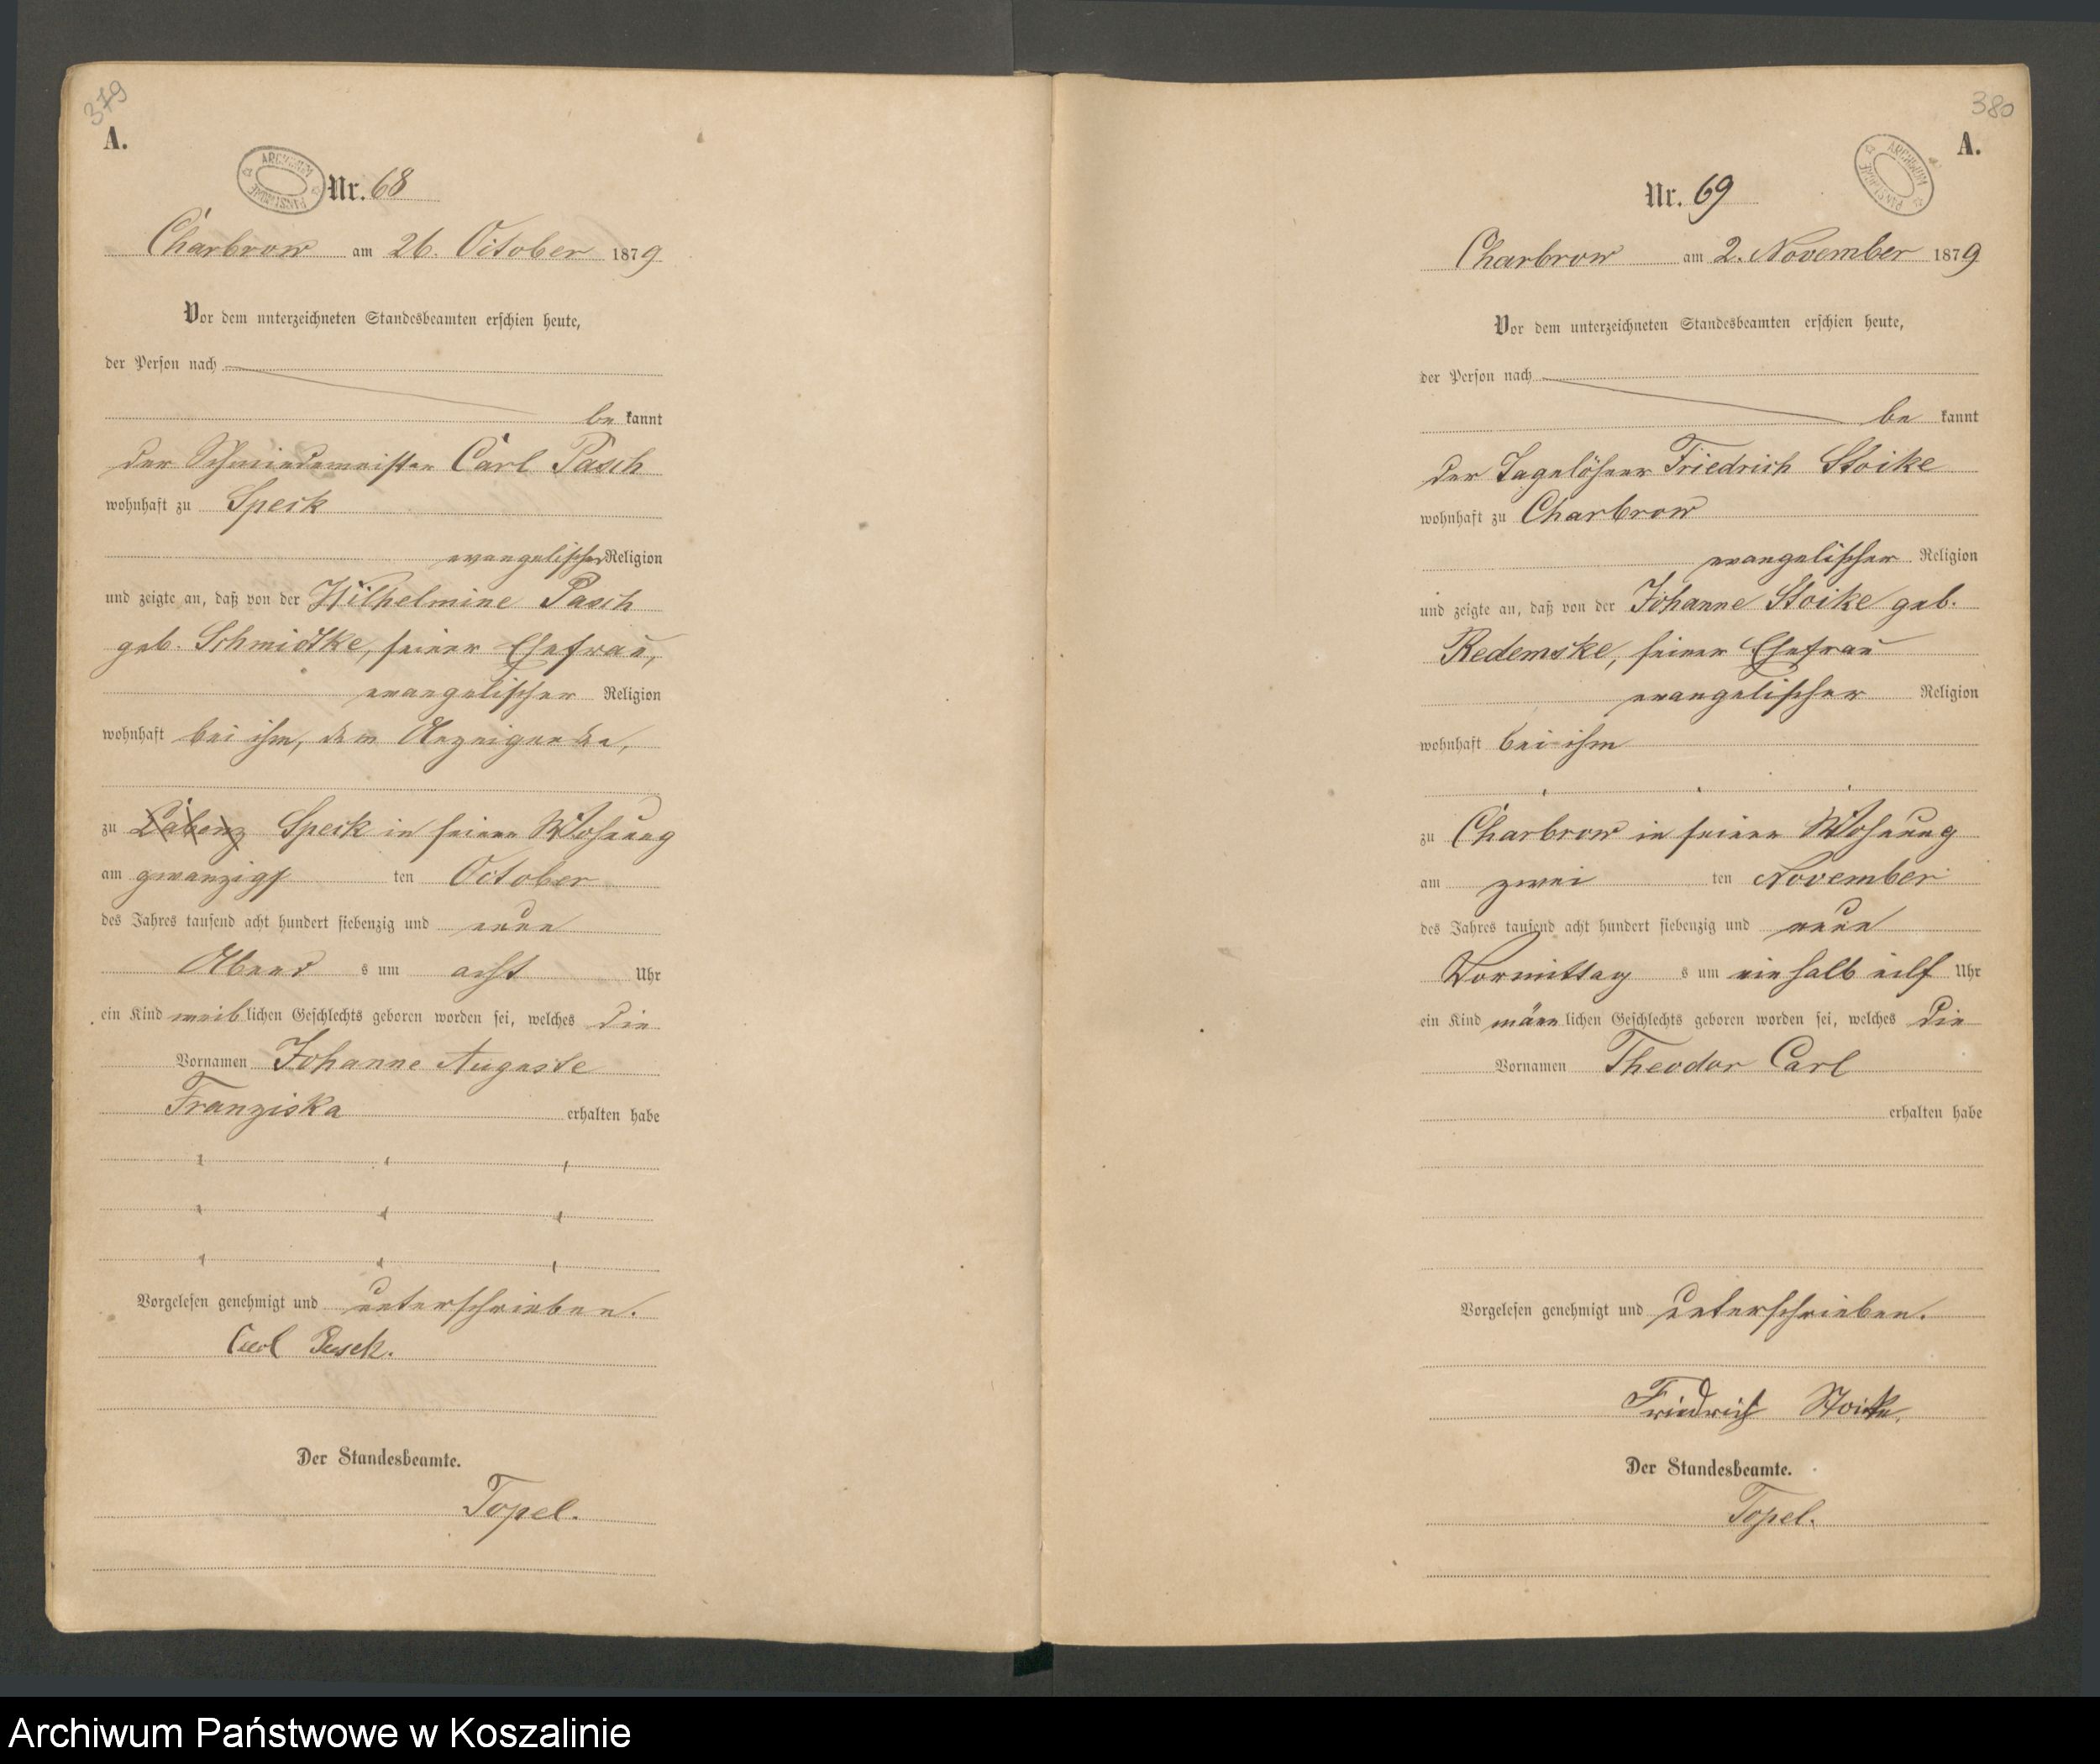 379
A.
ARCHIWUM PAŃSTWOWE
Nr. 68
Charbrow am 26. October 1879
Vor dem unterzeichneten Standesbeamten erschien heute,
der Person nach
be kannt
der Schmiedemeister Carl Pasch
wohnhaft zu Speck
evangelischer Religion
und zeigte an, daß von der Wilhelmine Pasch
geb. Schmidtke, seiner Ehefrau,
evangelischer Religion
wohnhaft bei ihm, dem Anzeigenden,
zu Labenz Speck in seiner Wohnung
am zwanzigs ten October
des Jahres tausend acht hundert siebenzig und neun
Abend s um acht Uhr
ein Kind weib lichen Geschlechts geboren worden sei, welches die
Vornamen Johanne Auguste
Franziska erhalten habe
Vorgelesen genehmigt und unterschrieben.
Carl Pasch.
Der Standesbeamte.
Topel.
380
A.
ARCHIWUM PAŃSTWOWE
Nr. 69
Charbrow am 2. November 1879
Vor dem unterzeichneten Standesbeamten erschien heute,
der Person nach
be kannt
der Tagelöhner Friedrich Stoike
wohnhaft zu Charbrow
evangelischer Religion
und zeigte an, daß von der Johanne Stoike geb.
Redemske, seiner Ehefrau
evangelischer Religion
wohnhaft bei ihm
zu Charbrow in seiner Wohnung
am zwei ten November
des Jahres tausend acht hundert siebenzig und neun
Vormittag s um ein halb eilf Uhr
ein Kind männ lichen Geschlechts geboren worden sei, welches die
Vornamen Theodor Carl
erhalten habe
Vorgelesen genehmigt und unterschrieben.
Friedrich Stoike.
Der Standesbeamte.
Topel.
Archiwum Państwowe w Koszalinie